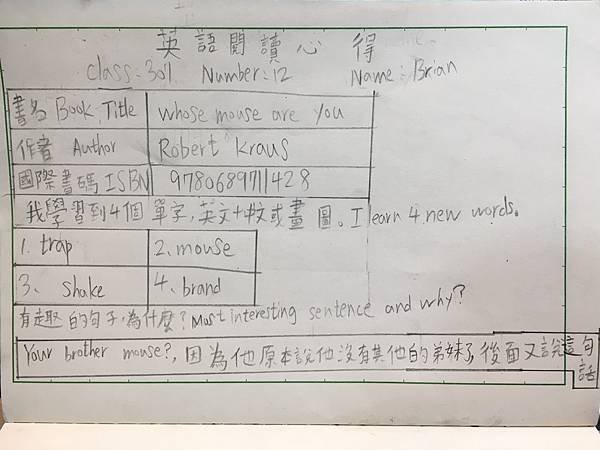 英語閱讀心得
class:301 Number:12 Name:Brian
書名 Book Title whose mouse are you
作者 Author Robert Kraus
國際書碼 ISBN 9780689711428
我學習到4個單字,英文+中文或畫圖。I learn 4 new words.
1. trap 2、mouse
3、shake 4、brand
有趣的句子,為什麼?Most interesting sentence and why?
Your brother mouse?,因為他原本說他沒有其他的弟妹了,後面又說這句
話